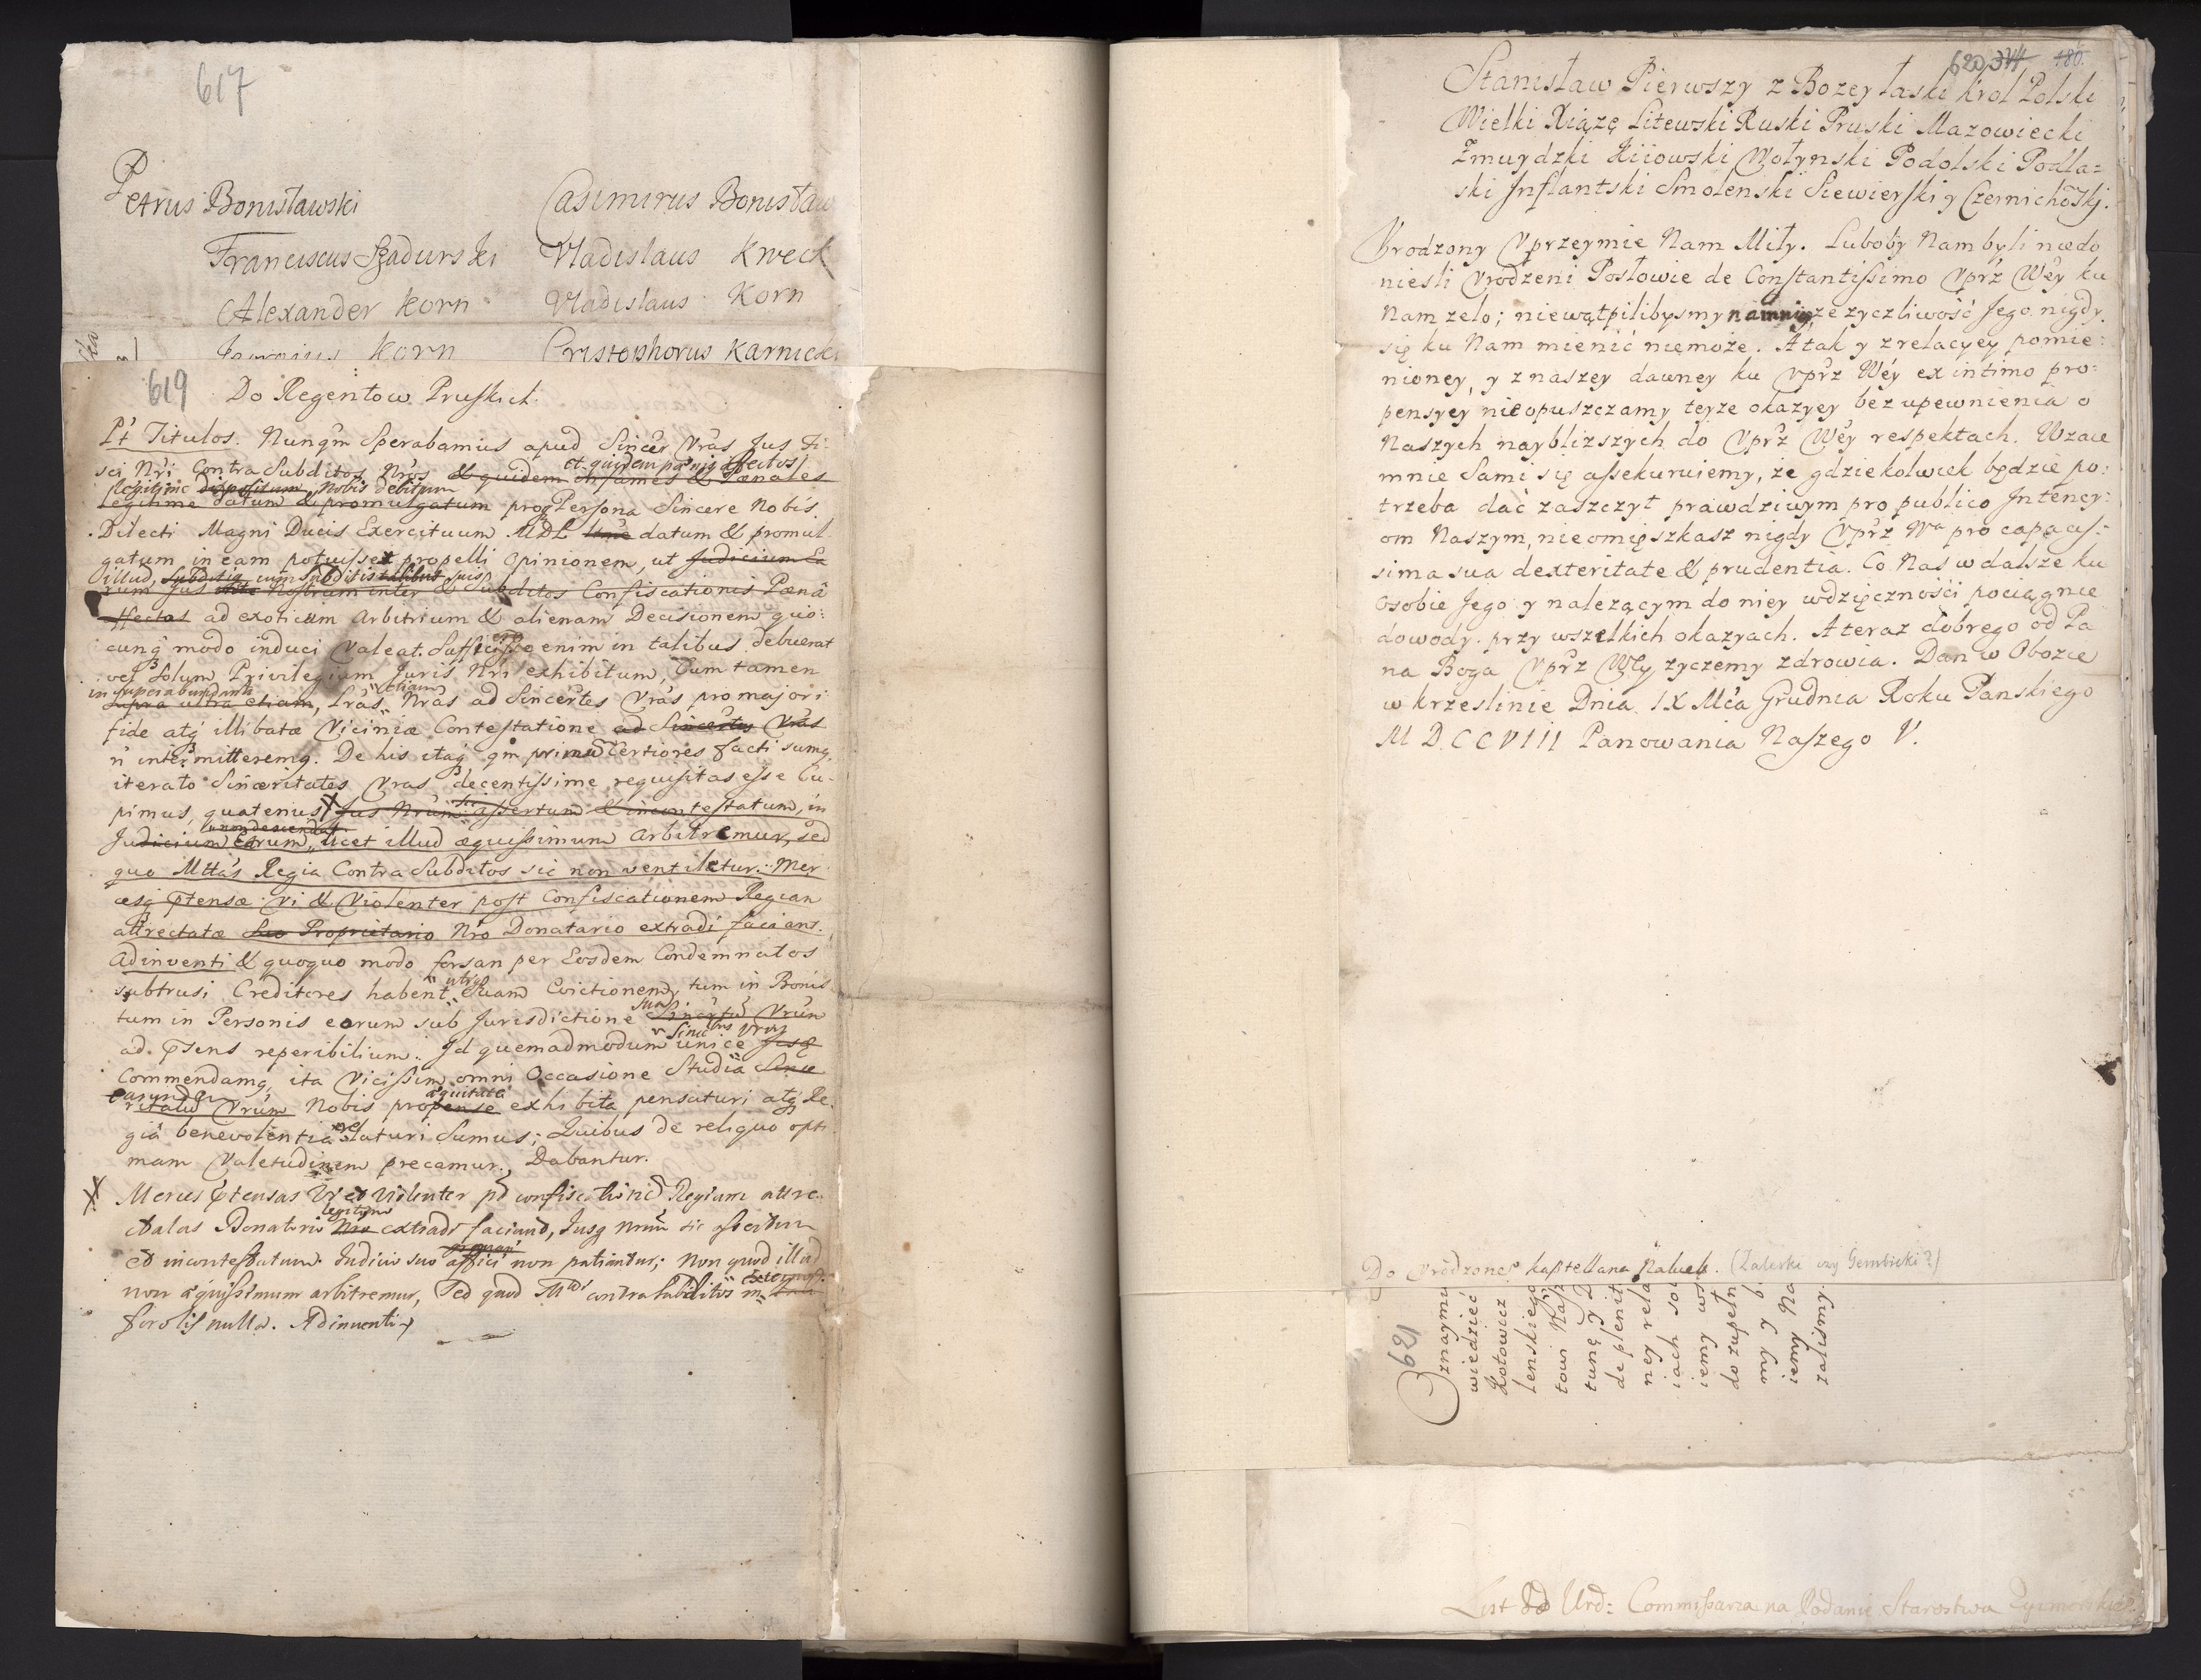 617
Petrus Bonisławski Casimirus Bonisław
Franciscus Szadurski Vladislaus Kweck
Alexander Korn Vladislaus Korn
Korn Cristophorus Karnicki
619
Do Regentow Pruskich
Pt Titulos. Nunqm Sperabamus apud Sincer Vras Jus Fi-
sci Nri Contra Subditos Nros & quidem infames & Pænales
legitime datum & promulgatum Persona Sincere Nobis
Dilecti Magni Ducis Exercituum MDL datum & promul
gatum in eam potuisset propelli Opinionem, ut Judicium Ea
illud, cum Subditis suis
rum Jus Nostrum inter & Subditos Confiscationis Pænâ
ffectos ad exoticum Arbitrium & alienam Decisionem quo:
cunq modo induci Valeat. enim in talibus debuerat
vel Solum Privilegium Juris Nri exhibitum, Cum tamen
in superabundanti etiam
supra ultra etiam, Lras Nras ad Sincertes Vras pro majori
fide atq illibatæ Viciniæ Contestatione ad Sincertes Vras
n intermitteremq. De his itaq qm primu Certiores facti sumq
iterato Sinceritates Vras decentissime requisitas esse Cu-
pimus, quatenus Jus Nrum assertum & incontestatum, in
non descendat
Judicium Earum, licet illud æquissimum arbitremur, sed
quo Mttas Regia Contra Subditos sic non ventiletur. Mer
vi & Violenter post Confiscationem Regiam
attrectatæ Suo Proprietario Nro Donatario extradi faciant.
Adinventi & quoquo modo forsan per Eosdem Condemnatos
subtrusi Creditores habent Suam Evictionem, tum in Bonis
tum in Personis eorum sub Jurisdictione Sincertu Vrun
ad reperibilium. Id quemadmodum unice
Commendamq, ita Vicissim omni Occasione Studia
Vrum Nobis propense exhibita pensaturi atq Re
giâ benevolentiâ laturi Sumus; Quibus de reliquo opti
mam Valetudinem precamur. Dabantur.
Merces Vi et Violenter confiscationem Regiam attre
ctatas Donatario legitimo extradi faciand, Jusq nrum sic assertum
et incontestatum Judicio suo affici non patiantur; non quod illud
non æquissimum arbitremur, sed quod contra subditos in
foro sit nulla. Adinventi
620 344 180.
Stanisław Pierwszy z Bozey łaski Krol Polski
Wielki Xiązę Litewski Ruski Pruski Mazowiecki
Zmuydzki Kiiowski Wołynski Podolski Podla=
ski Inflantski Smolenski Siewierski y Czernichõski.
Vrodzony Vprzeymie Nam Miły. Luboby Nam byli niedo
niesli Vrodzeni Posłowie de Constantissimo Vprz Wey ku
Nam zelo; niewątpilibysmy namniey ze zyczliwość Jego nigdy
się ku Nam mienić niemoże. A tak y z relacyey pomie:
nioney, y z naszey dawney ku Vprz Wey ex intimo pro:
pensyey nieopuszczamy teyze okazyey bez upewnienia o
Naszych naybliższych do Vprz Wey respektach. Wzaie
mnie Sami się assekuruiemy, że gdziekolwiek będzie po:
trzeba dać zaszczyt prawdziwym pro publico Intency:
om Naszym, nieomięszkasz nigdy Vprz Wa pro capacis:
sima sua dexteritate & prudentia. Co Nas w dalsze ku
Osobie Jego y nalezącym do niey wdzięczności pociągnie
dowody przy wszelkich okazyach. A teraz dobrego od Pa
na Boga Vprz Wey zyczemy zdrowia. Dan w Obozie
w krzeslinie Dnia IX Mca Grudnia Roku Panskiego
M D.CCVIII Panowania Naszego V.
Do Vrodzoneo kasztellana Nakielk. (Zaleski czy Gembicki?)
621
Oznaymu
wiedzieć
Kotowicz
lenskiego
towi Nasz
tunę y
de plenit
ney rela
iach so
iemy ws
do zupełn
my y b
iemy Na
zalismy
List Do Urd: Commissarza na Podanie Starostwa